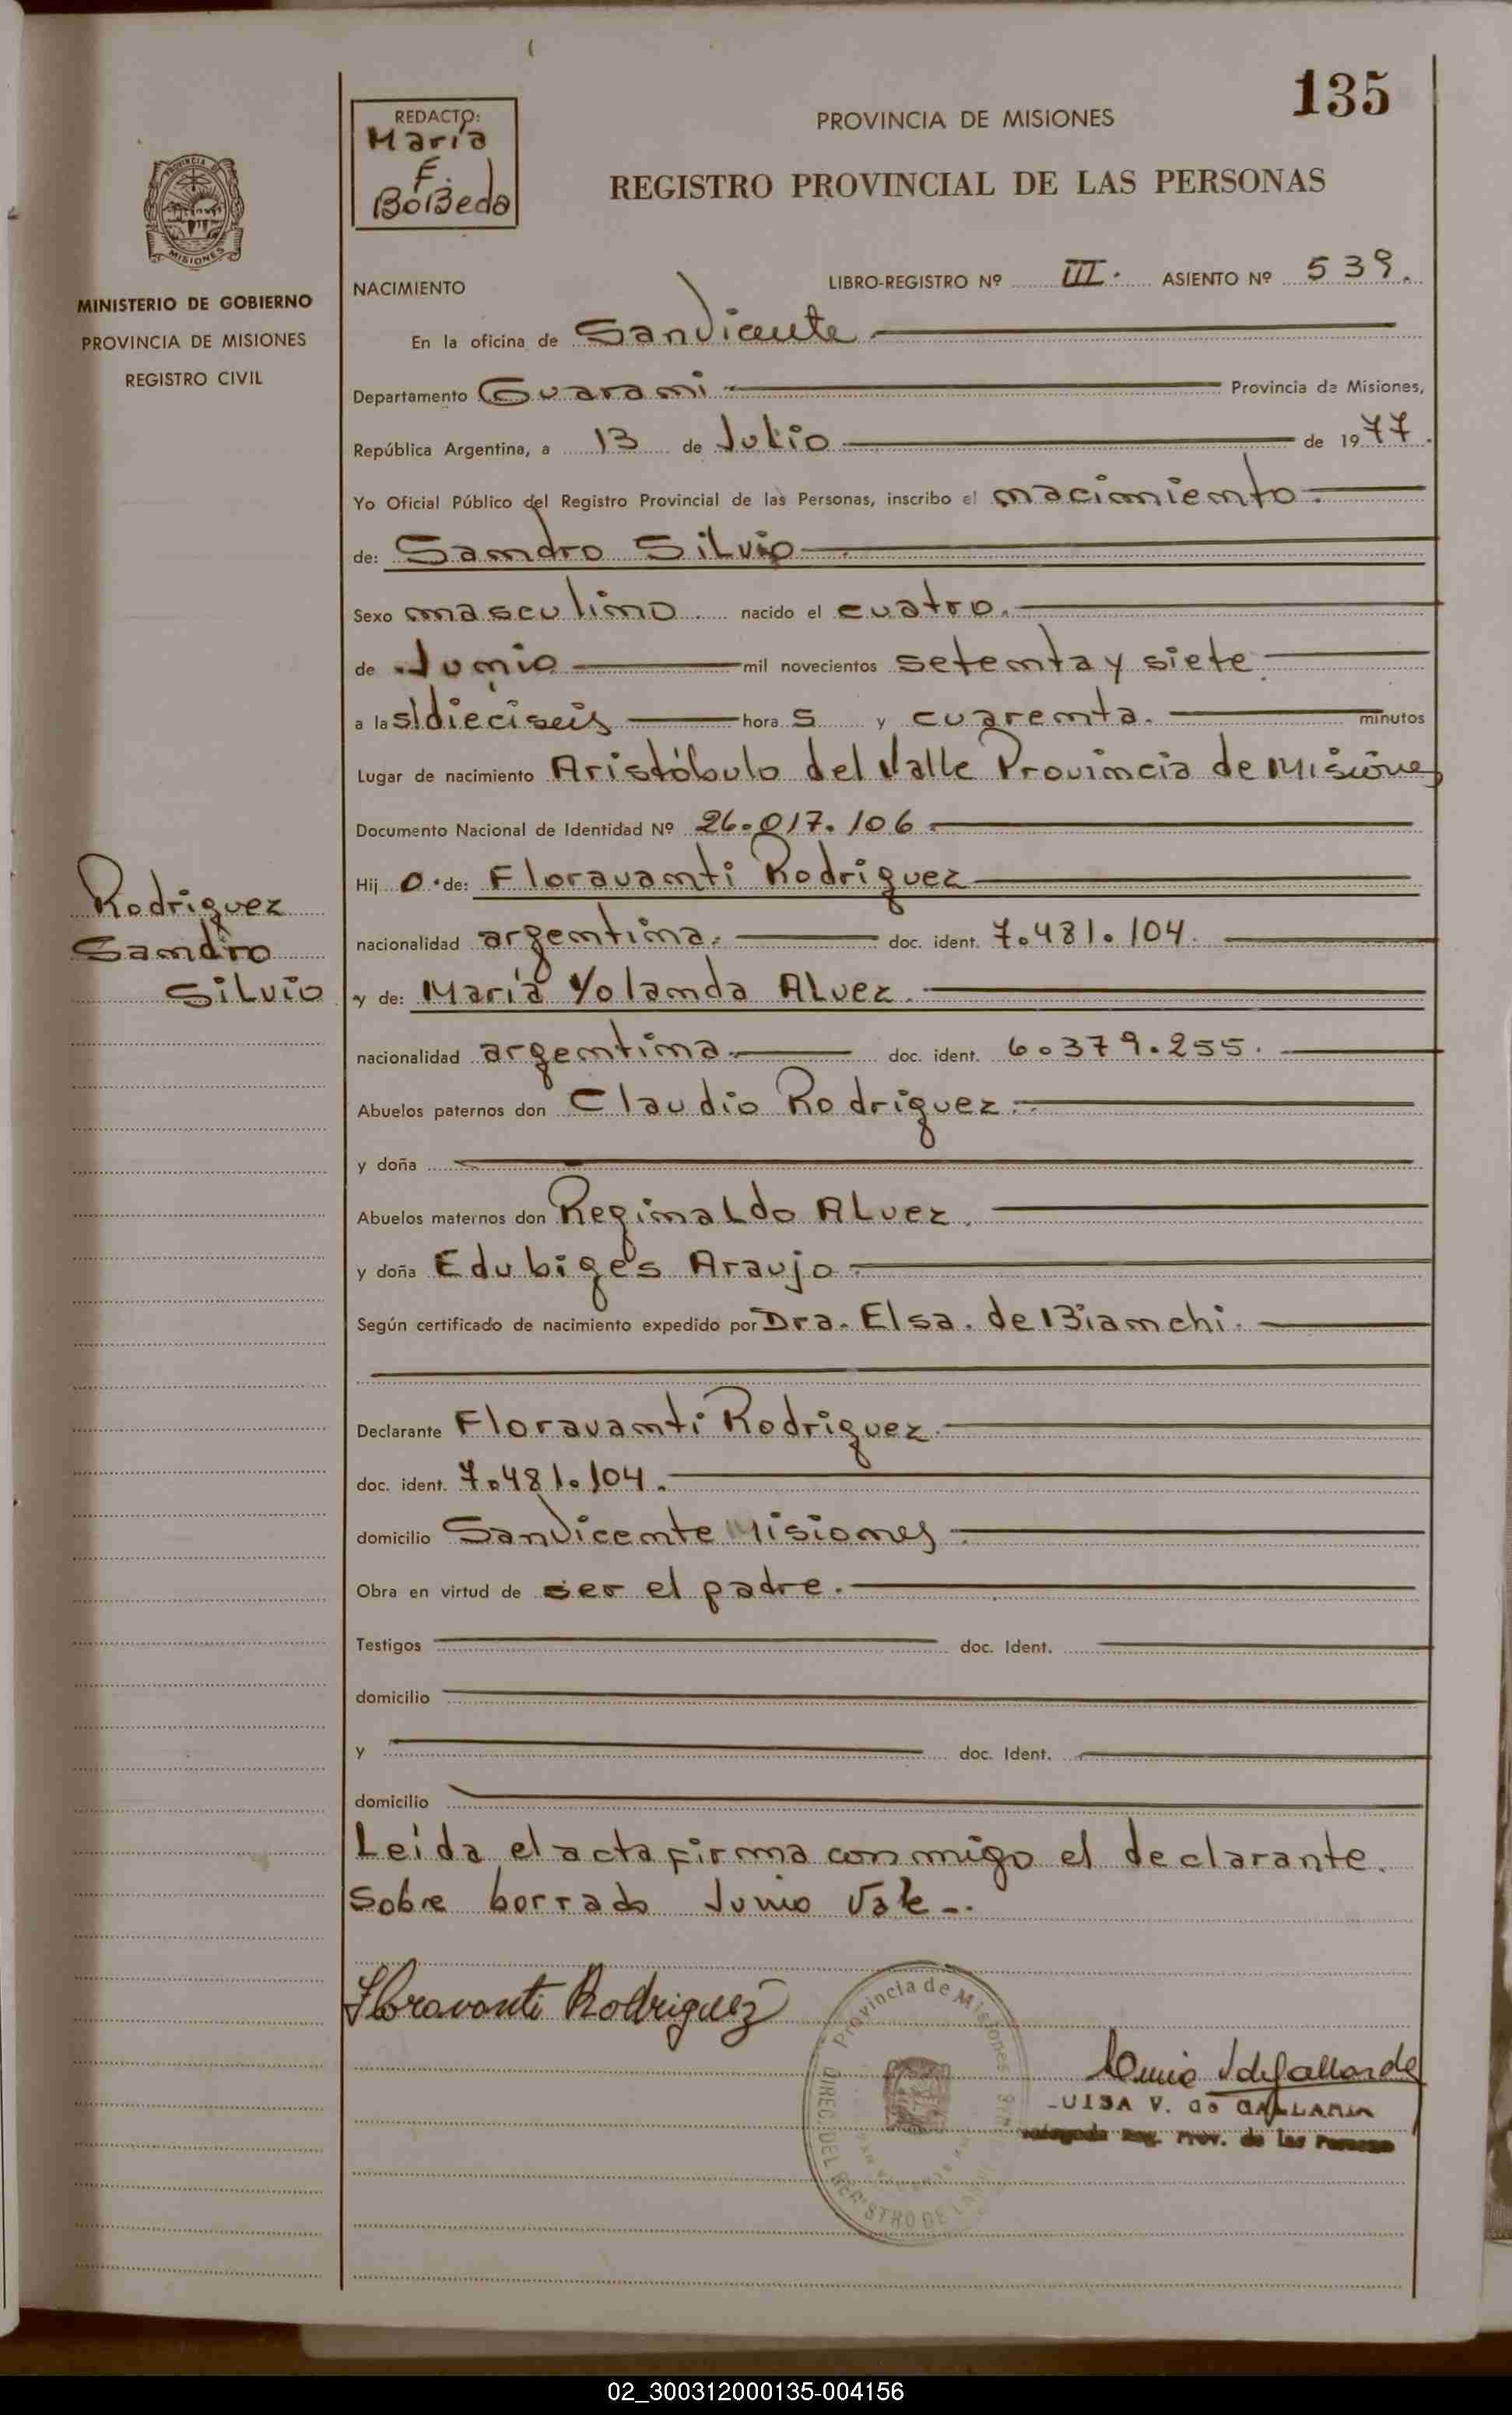 135
REDACTO:
María
E.
BoBeda
PROVINCIA DE MISIONES
REGISTRO PROVINCIAL DE LAS PERSONAS
PROVINCIA DE
MISIONES
MINISTERIO DE GOBIERNO
PROVINCIA DE MISIONES
REGISTRO CIVIL
NACIMIENTO
LIBRO-REGISTRO Nº III. ASIENTO Nº 539.
En la oficina de San Vicente
Departamento Guarani Provincia de Misiones,
República Argentina, a 13 de Julio de 1977.
Yo Oficial Público del Registro Provincial de las Personas, inscribo el nacimiento.
de: Sandro Silvio
Sexo masculino nacido el cuatro.
de Junio mil novecientos setenta y siete
a las dieciseis hora s y cuarenta. minutos
Lugar de nacimiento Aristóbulo del Valle Provincia de Misiones
Documento Nacional de Identidad Nº 26.017.106
Hij o de: Floravanti Rodriguez
nacionalidad argentina. doc. ident. 7.481.104.
y de: María Yolanda Alvez.
nacionalidad argentina. doc. ident. 6.379.255.
Abuelos paternos don Claudio Rodriguez.
y doña
Abuelos maternos don Reginaldo Alvez.
y doña Edubiges Araujo
Según certificado de nacimiento expedido por Dra. Elsa. de Bianchi.
Declarante Floravanti Rodriguez.
doc. ident. 7.481.104.
domicilio San Vicente Misiones
Obra en virtud de ser el padre.
Testigos doc. Ident.
domicilio
y doc. Ident.
domicilio
Leída el acta firma conmigo el declarante.
Sobre borrado Junio Vale-.
Rodriguez
Sandro
Silvio
Floravanti Rodriguez
Provincia de Misiones
DIREC. DEL REGISTRO DE LAS
LUISA V. de GALLARDO
Reg. Prov. de las Personas
02_300312000135-004156